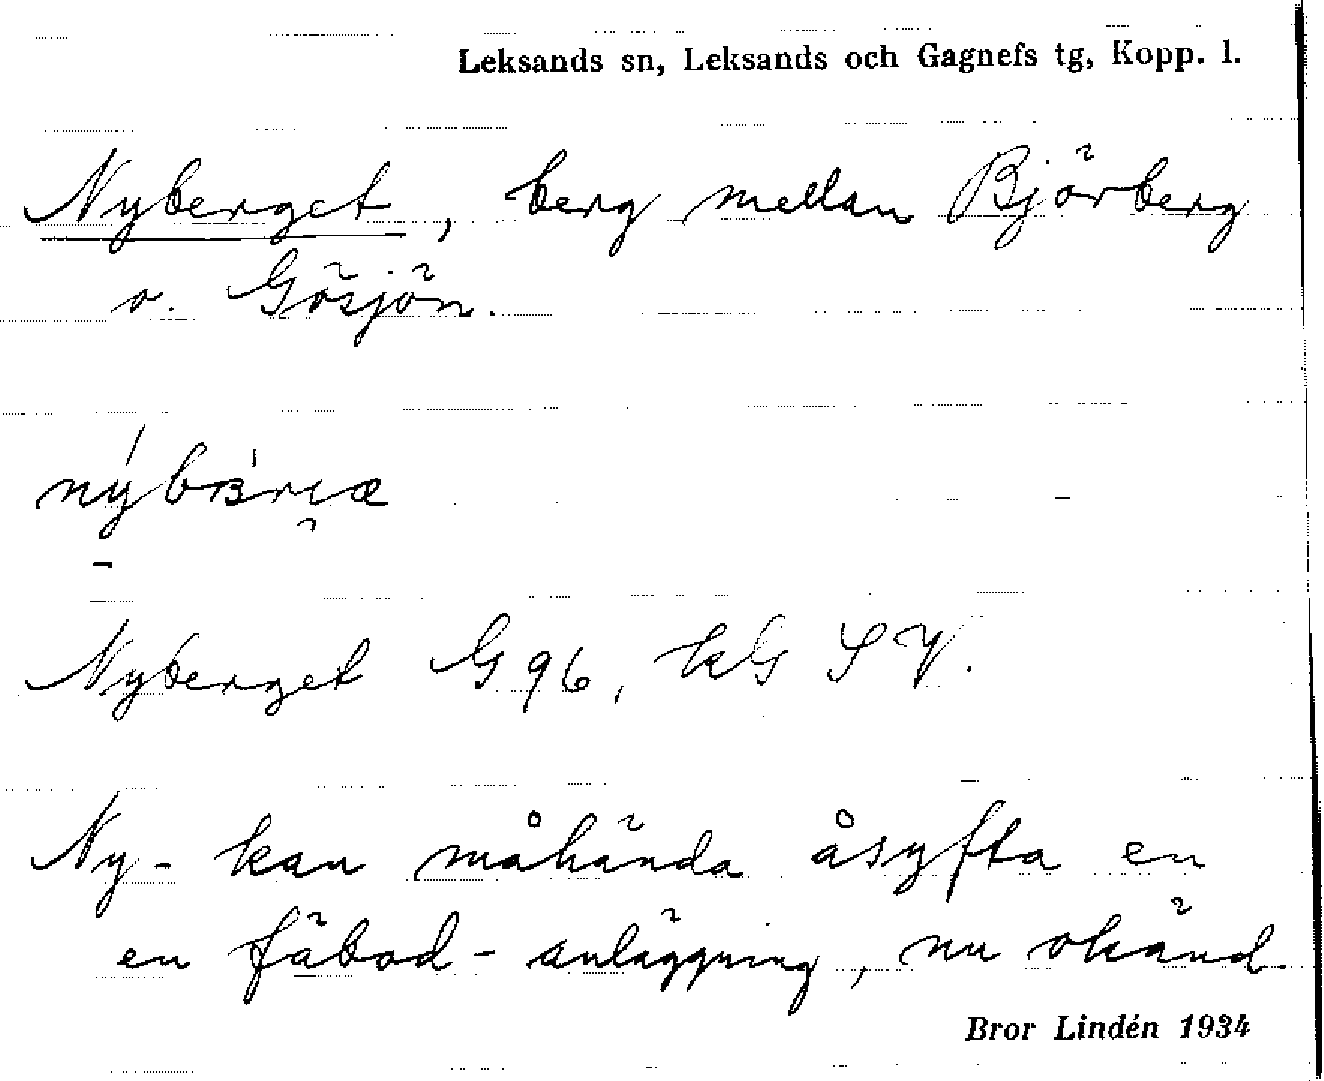 Leksands sn, Leksands och Gagnefs tg, Kopp. l.
Nyberget, berg mellan Björberg
o. Gösjön.
Nyberget G 96, kG SV.
Ny- kan måhända åsyfta en
en fäbod-anläggning, nu okänd
Bror Lindén 1934